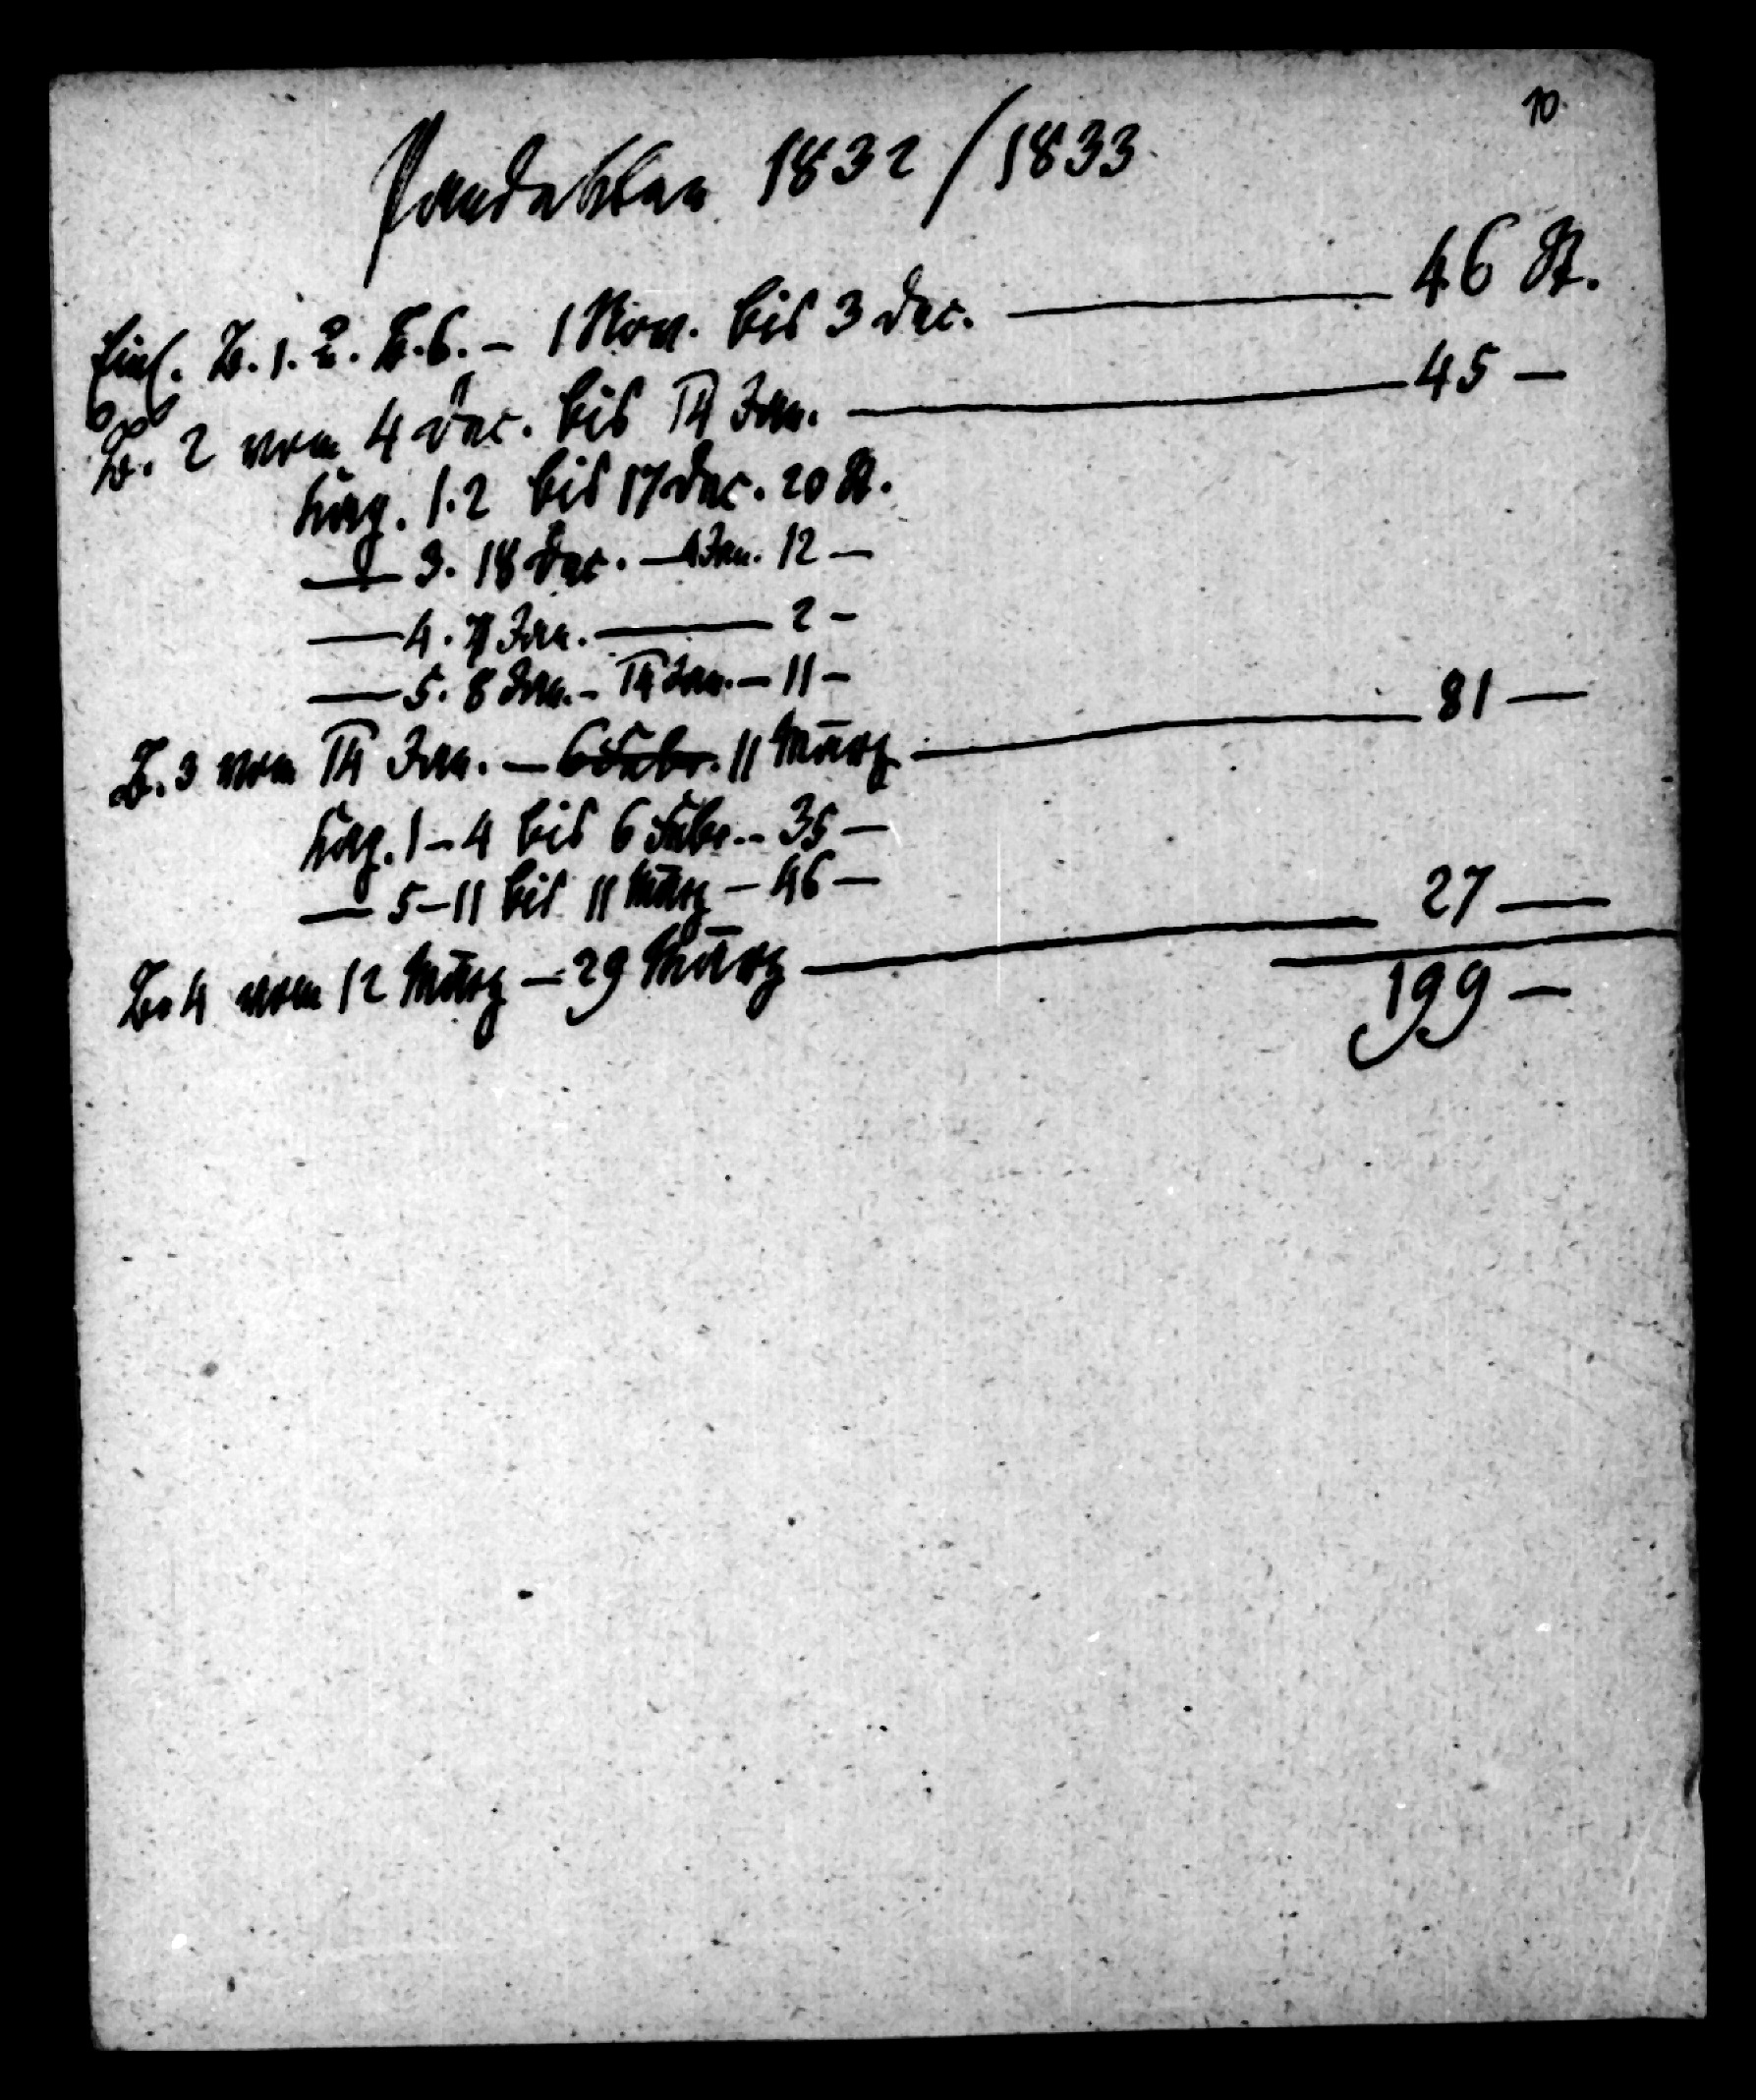 10.
Pandekten 1832/1833
Einl. B. 1. 2. B. 6. – 1 Nov. bis 3 Dec. — 46 St.
B. 2 vom 4 Dec. bis 14 Jan. — 45 —
Kap. 1.2 bis 17 Dec. 20 St.
— 3. 18 Dec. — 4 Jan. 12 —
— 4. 7 Jan. — 2 —
— 5. 8 Jan. – 14 Jan. — 11 —
B. 3 vom 14 Jan. — 6 Febr. 11 März — 81 —
Kap. 1–4 bis 6 Febr. – 35 —
— 5–11 bis 11 März – 46 —
B. 4 vom 12 März — 29 März — 27 —
199 —